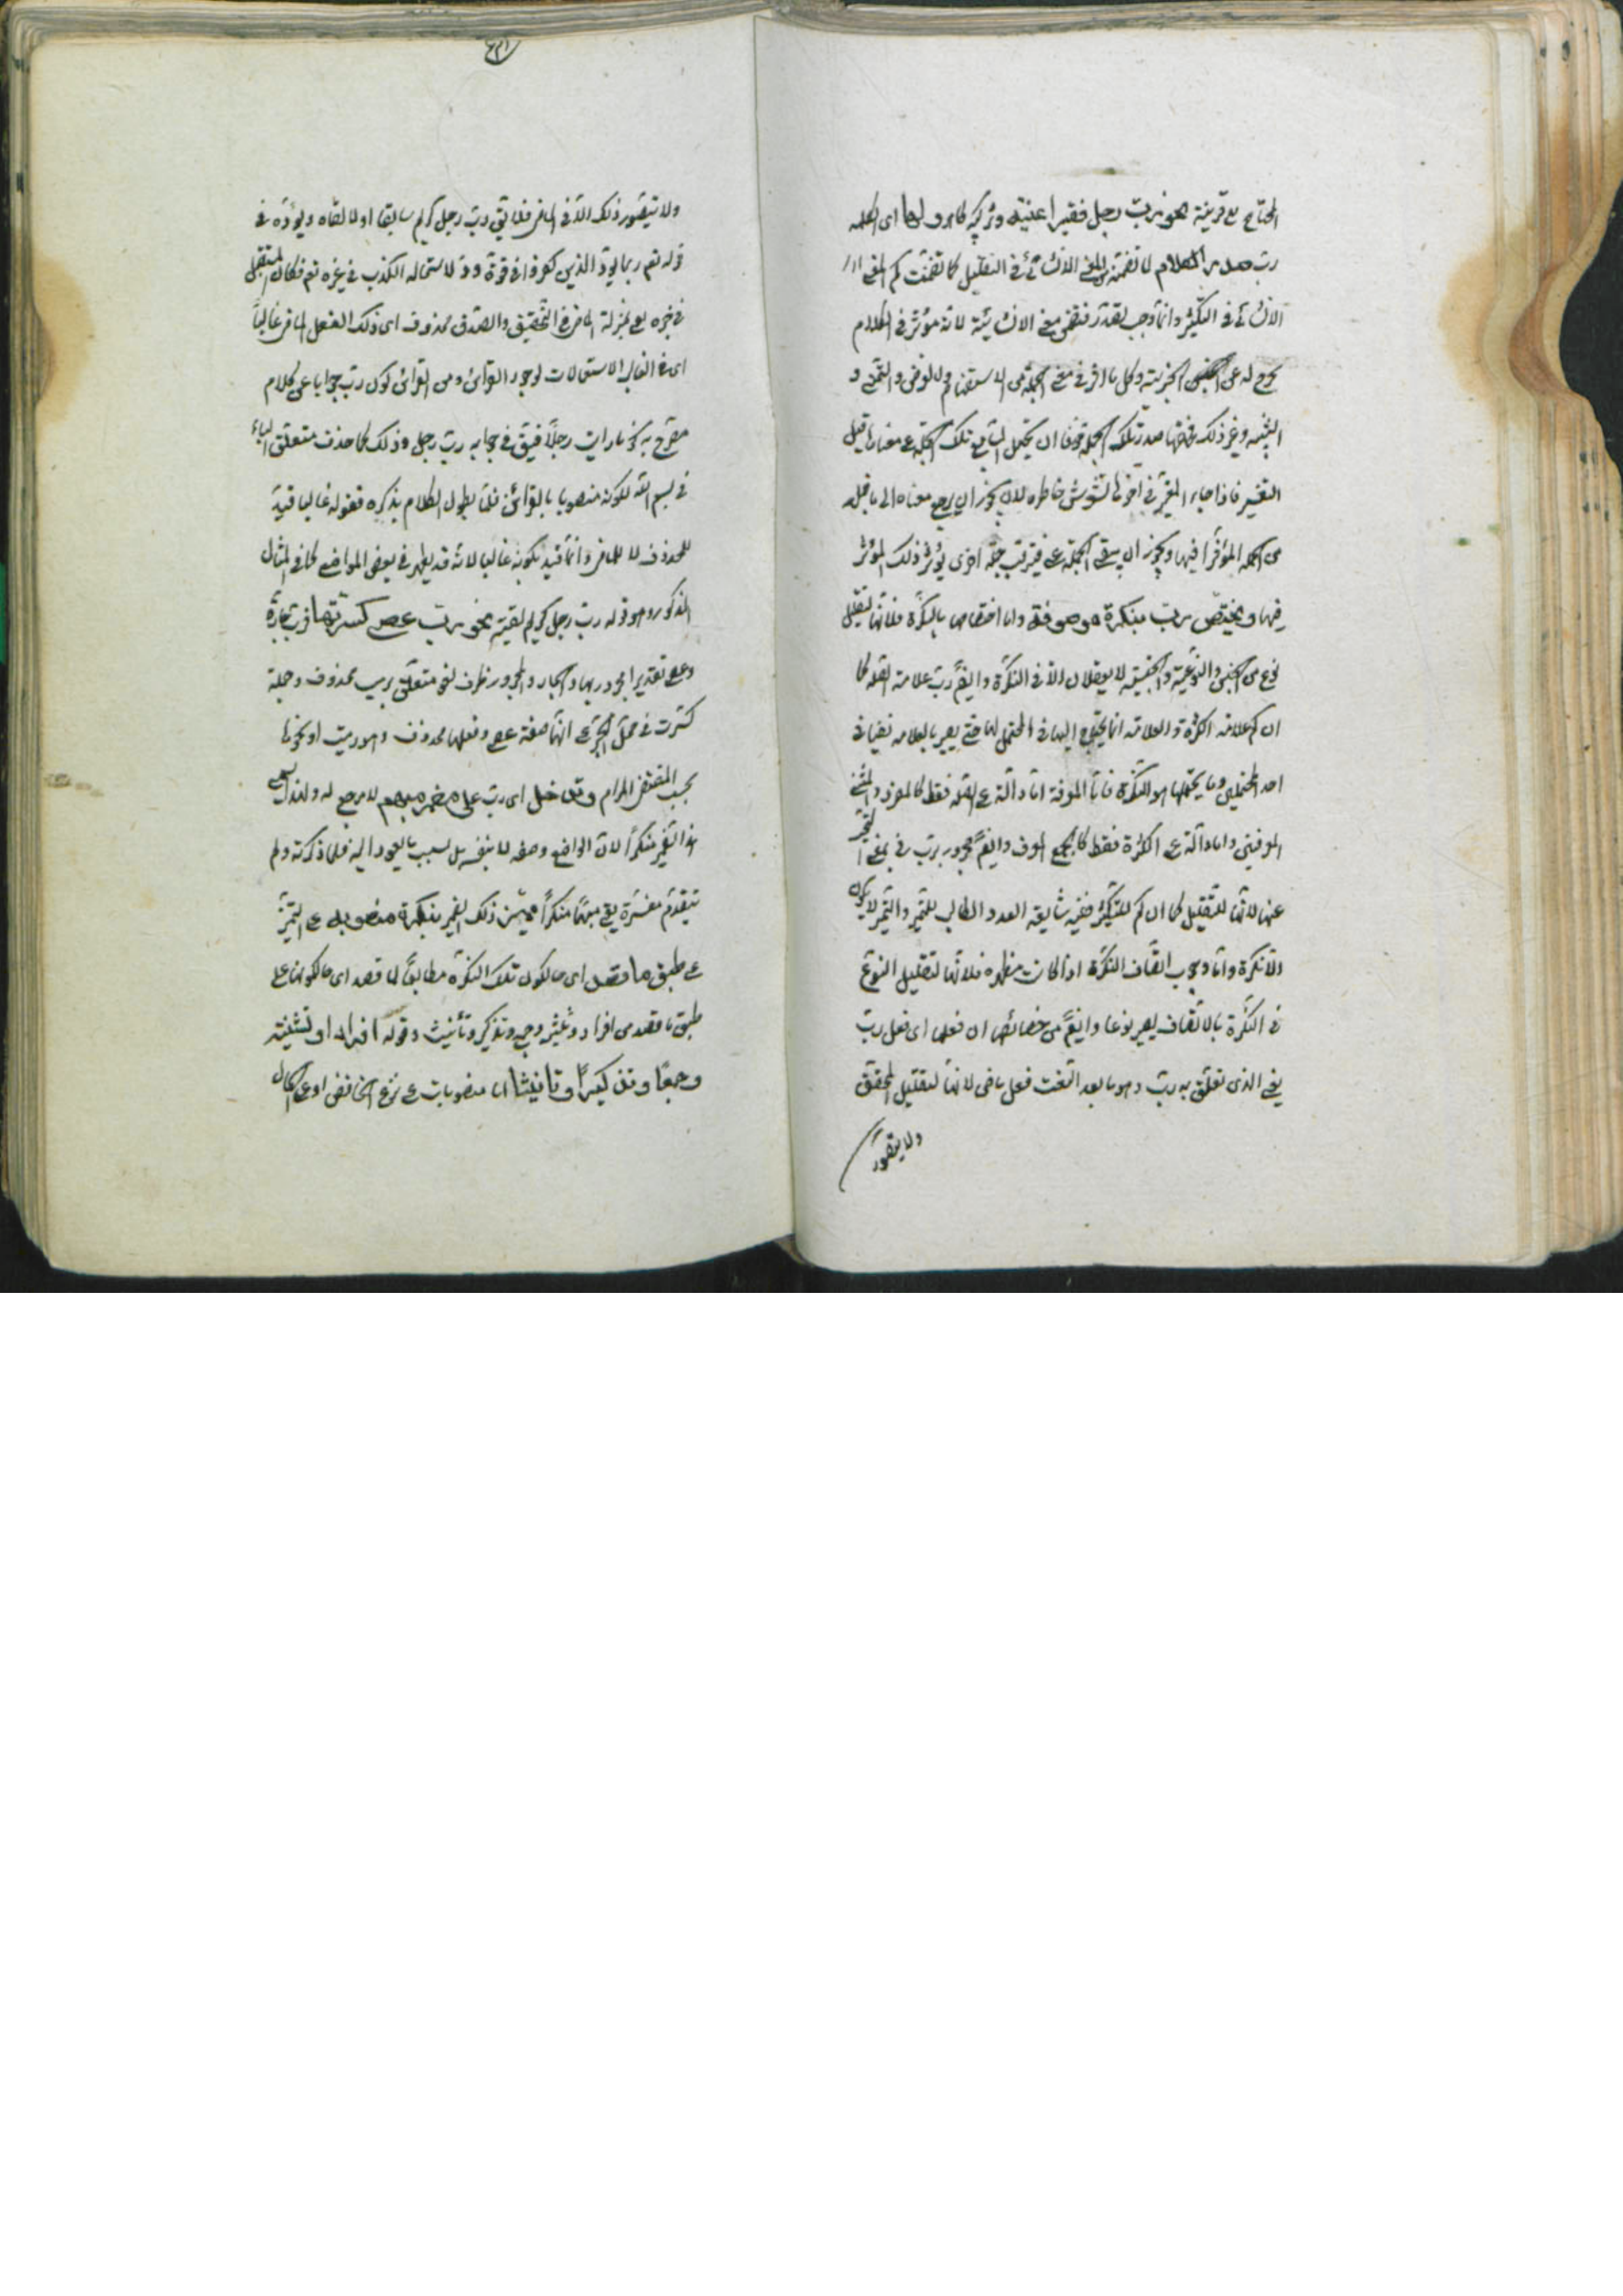 المحتاج مع قرينة نحو رب رجل فقير اغنيته وتركيبه ظاهر ولها اى لكلمة
رب صدر الكلام لما تضمنه المعنى الانشائى فى التقليل كما تضمنت كم المعنى
الانشائى فى التكثير وانما وجب تقدر تضمن معنى الانشائية لانه مؤثر فى الكلام
مخرج له عن الخبرية وكل ما اثر فى معنى الجملة من الاستفهام والعرض والتمنى و
التشبيه وغير ذلك فحقها صدر تلك الجملة خوفا ان يحمل السامع تلك الجملة على معناها قبل
التغيير فاذا جاء المغير فى اخرها تشوش خاطره لانه يجوز ان يرجع معناه الى ما قبله
من الجملة المؤثر فيها ويجوز ان يبقى الجملة على فيترقب جملة اخرى يؤثر ذلك المؤثر
فيها ويختص رب بنكرة موصوفة واما اختصاصها بالنكرة فلانها لتقليل
نوع من الجنس والنوعية والجنسية لا يعقلان الا فى النكرة وايضا رب علامة القلة كما
ان كم علامة الكثرة والعلامة انما يحتاج اليها فى المحتمل لهما حتى يصير بالعلامة نصا فى
احد المحتملين وما يحتملهما هو النكرة فاما المعرفة اما دالة على القلة فقط كالمفرد والمثنى
المعرفتين واما دالة على الكثرة فقط كالجمع المعرف وايضا مجرور رب فى معنى التمييز
عنها لانها للتقليل كما ان كم للتكثير ففيه شايبة العدد الطالب للتمييز والتمييز لا يكون
الا نكرة واما وجوب اتصاف النكرة اذا كانت مظهرة فلانها لتقليل النوع
فى النكرة بالاتصاف يصير نوعا وايضا من خصائصها ان فعلها اى فعل رب
يعنى الذى تعلق به رب وهو ما بعد النعت فعل ماض لانها لتقليل المحقق
ولا يتصور
ولا يتصور ذلك الا فى الماضى فلا يقال رب رجل كريم سالقاه او لا القاه ويؤده فى
قوله تعم ربما يود الذين كفروا فى قوة ود لاستحالة الكذب فى خبره تعم فكان المستقبل
فى خبره تعم بمنزلة الماضى فى التحقيق والصدق محذوف اى ذلك الفعل الماضى غالبا
اى فى الغالب الاستعمالات لوجود القرائن ومن القرائن كون رب جوابا عن كلام
مصرح به نحو ما رايت رجلا فيقال فى جوابه رب رجل وذلك كما حذف متعلق الباء
فى بسم الله لكونه منصوبا بالقرائن فلما يطول الكلام بذكره فقوله غالبا قيد
للمحذوف لا للماضى وانما قيد بكونه غالبا لانه قد يظهر فى بعض المواضع كما فى المثال
المذكور وهو قوله رب رجل كريم لقيته نحو رب عصى كسرتها فرب جارة
وعصى تقديرا مجرور بها والجار والمجرور ظرف لغو متعلق برب محذوف وجملة
كسرت فى محل الجر على انها صفة عصى وفعلها محذوف وهو رميت او نحوها
بحسب المقتضى المرام وتدخل اى رب على مضمر مبهم لا مرجع له ولهذا سمى
هذا الضمير منكرا لان الواضع وضعه لا بنفسه بل بسبب ما يعود اليه فلما ذكرته ولم
يتقدم مفسرة بقى مبهما منكرا مميز ذلك الضمير بنكرة منصوبة على التمييز
على طبق ما قصد اى حال كون تلك النكرة مطابقا لما قصد اى حال كونها على
طبق ما قصد من افراد وتثنية وجمع وتذكير وتأنيث وقوله افرادا وتثنية
وجمعا وتذكيرا وتانيثا اما منصوبات على نزع الخافض او على الحال